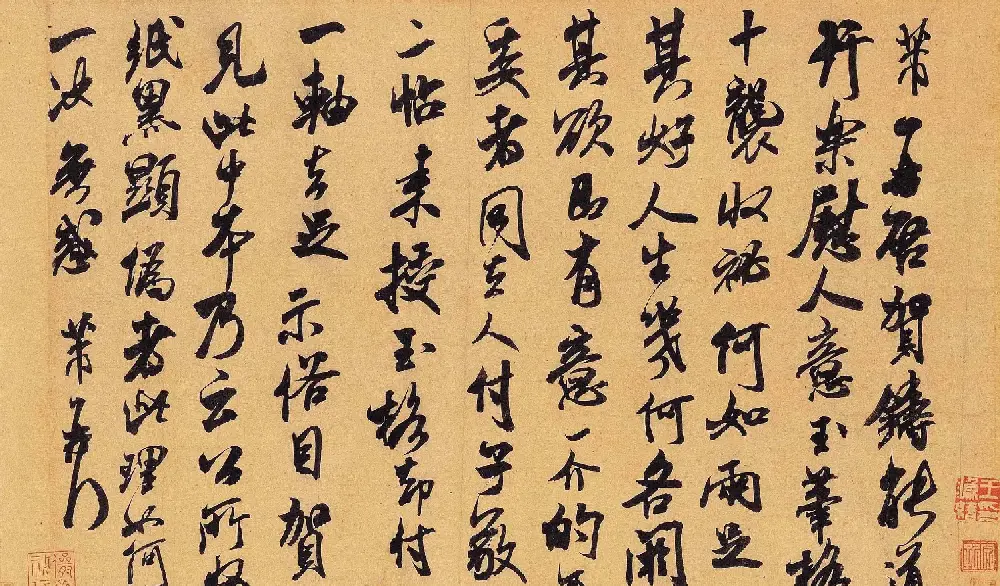 芾一再啓賀鑄能道
行樂慰人意玉筆格
十襲收祕何如兩足
其好人生幾何各閱
其欲即有意一介的
委者同去人付子敬
二帖來授玉格却付
一軸去足示俗目賀
見此中本乃云公所收
紙黑顯僞者此理如何
一決無惑芾頓首